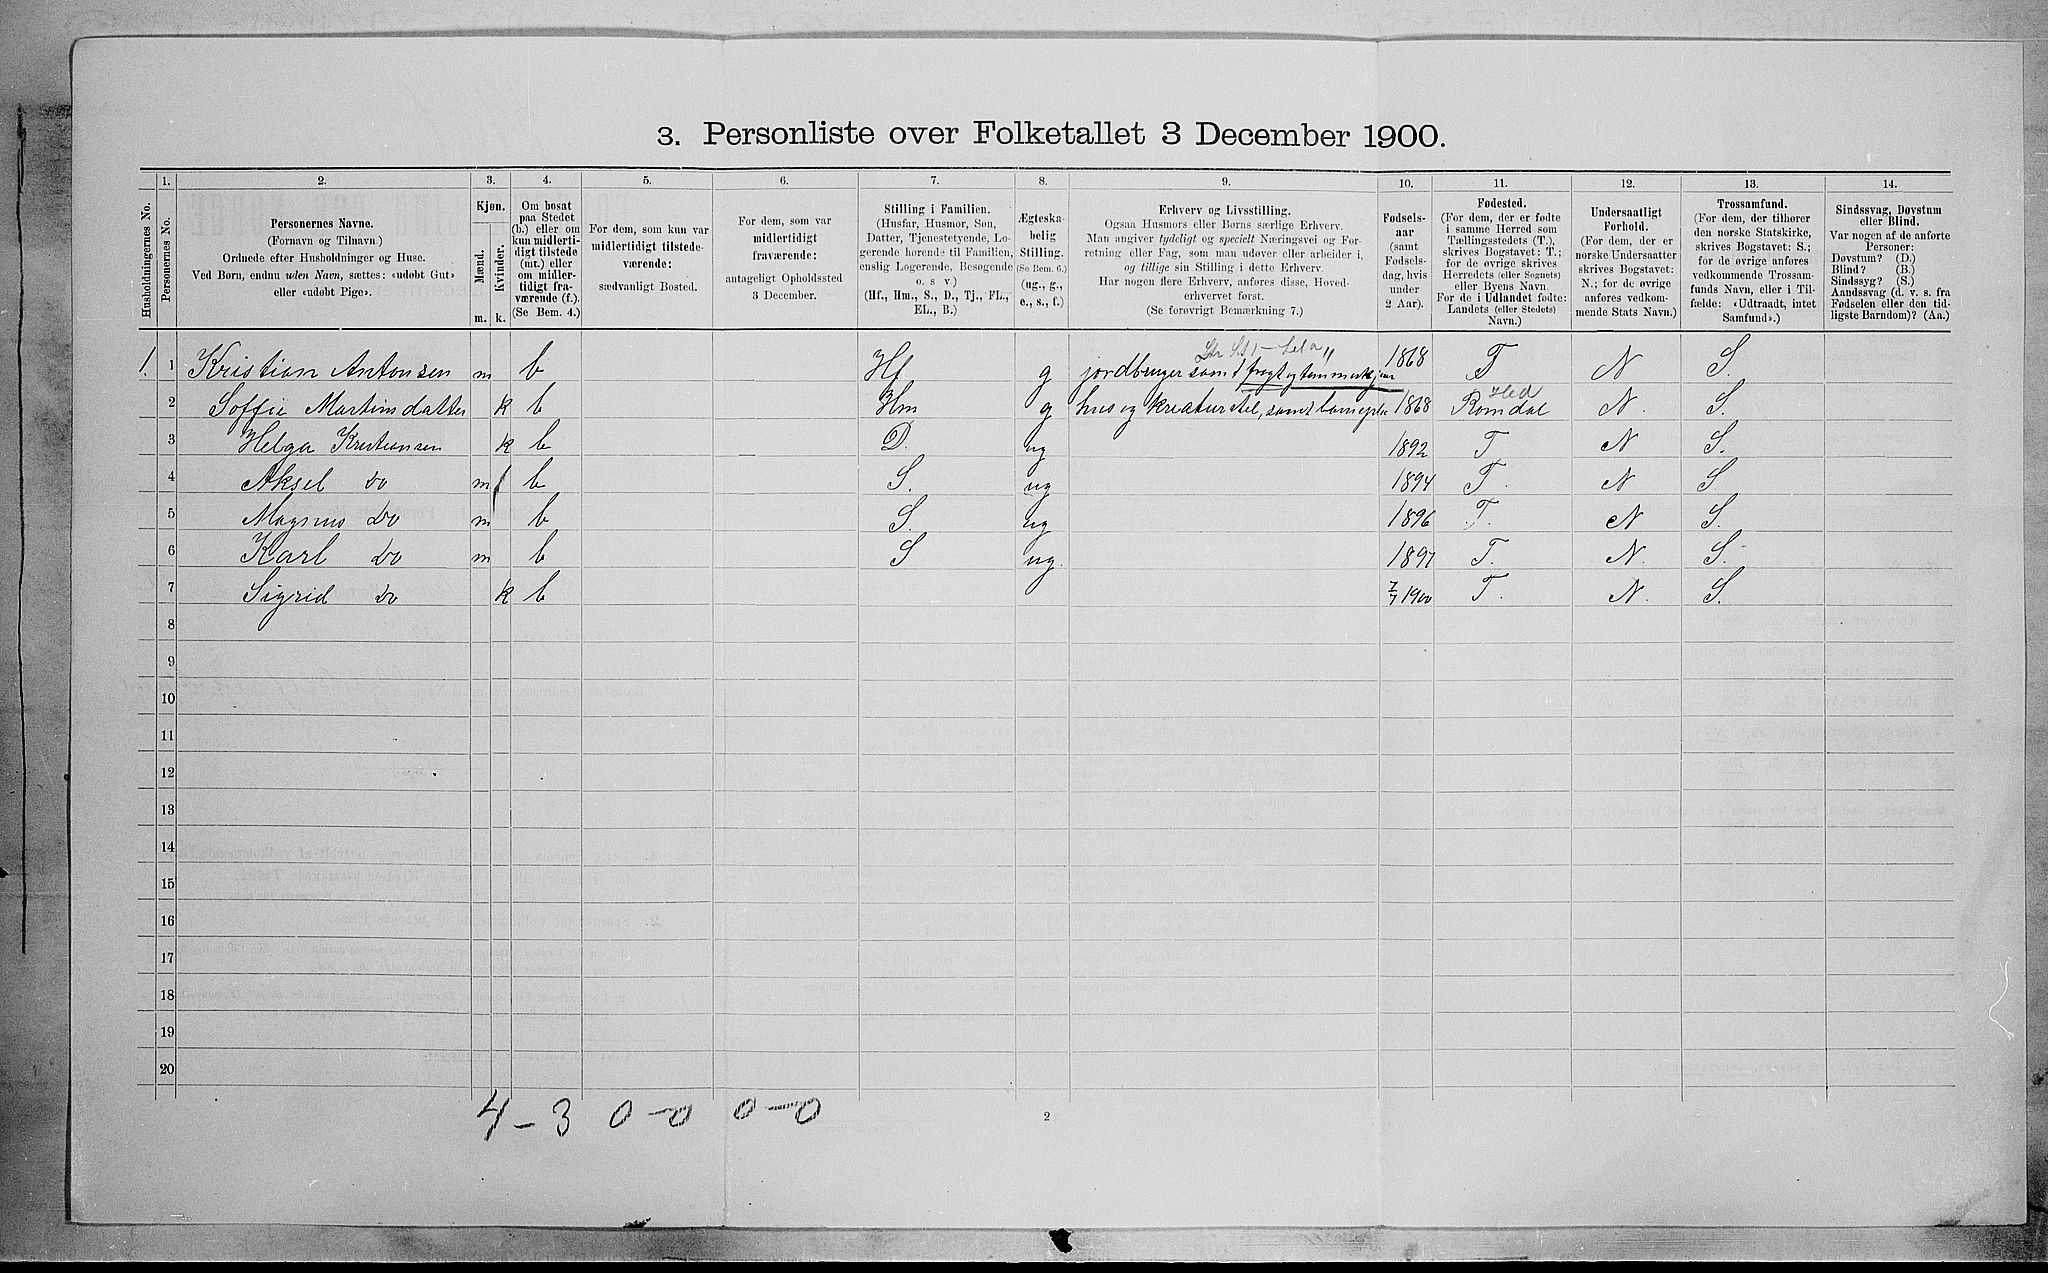 3. Personliste over Folketallet 3 December 1900.
1. 2. 3. 4. 5. 6. 7. 8. 9. 10. 11. 12. 13. 14.
Husholdningernes No.
Personernes No.
Personernes Navne.
(Fornavn og Tilnavn)
Ordnede efter Husholdninger og Huse.
Ved Børn, endnu uden Navn, sættes: «udøbt Gut»
eller «udøbt Pige».
Kjøn.
Mænd.
Kvinder.
m. k.
Om bosat
paa Stedet
(b.) eller om
kun midlerti-
digt tilstede
(mt.) eller
om midler-
tidigt fra-
værende (f.).
(Se Bem. 4.)
For dem, som kun var
midlertidigt tilstede-
værende:
sædvanligt Bosted.
For dem, som var
midlertidigt
fraværende:
antageligt Opholdssted
3 December.
Stilling i Familien.
(Husfar, Husmor, Søn,
Datter, Tjenestetyende, Lo-
gerende hørende til Familien,
enslig Logerende, Besøgende
o. s v.)
(Hf., Hm., S., D., Tj., FL.,
EL., B.)
Ægteska-
belig
Stilling.
(Se Bem. 6.)
(ug., g.,
e., s., f.)
Erhverv og Livsstilling.
Ogsaa Husmors eller Børns særlige Erhverv.
Man angiver tydeligt og specielt Næringsvei og For-
retning eller Fag, som man udøver eller arbeider i,
og tillige sin Stilling i dette Erhverv.
Har nogen flere Erhverv, anføres disse, Hoved-
erhvervet først.
(Se forøvrigt Bemærkning 7.)
Fødsels-
aar
(samt
Fødsels-
dag, hvis
under
2 Aar).
Fødested.
(For dem, der er fødte
i samme Herred som
Tællingsstedets (T.),
skrives Bogstavet: T.;
for de øvrige skrives
Herredets (eller Sognets)
eller Byens Navn.
For de i Udlandet fødte:
Landets (eller Stedets)
Navn.)
Undersaatligt
Forhold.
(For dem, der er
norske Undersaatter
skrives Bogstavet:
N.; for de øvrige
anføres vedkom-
mende Stats Navn.)
Trossamfund.
(For dem, der tilhører
den norske Statskirke,
skrives Bogstavet: S.;
for de øvrige anføres
vedkommende Trossam-
funds Navn, eller i Til-
fælde: «Udtraadt, intet
Samfund».)
Sindssvag, Døvstum
eller Blind.
Var nogen af de anførte
Personer:
Døvstum? (D.)
Blind? (B.)
Sindssyg? (S.)
Aandssvag (d. v. s. fra
Fødselen eller den tid-
ligste Barndom)? (Aa.)
1. 1 Kristian Antonsen m b Hf g jordbruger samt fragt og tømmerkjører 1868 T N S.
2 Soffie Martinsdatter k b Hm g hus og kreaturstel, samt barneplei 1868 Romdal Hed N. S.
3 Helga Kristiansen k b D. ug 1892 T N S.
4 Aksel Do m b S. ug 1894 T. N S
5 Magnus Do m b S. ug 1896 T. N S.
6 Karl Do m b S ug. 1897 T. N. S.
7 Sigrid Do k b 7/7 1900 T. N. S.
8
9
10
11
12
13
14
15
16
17
18
19
20
4 - 3 0 - 0 0 - 0
2